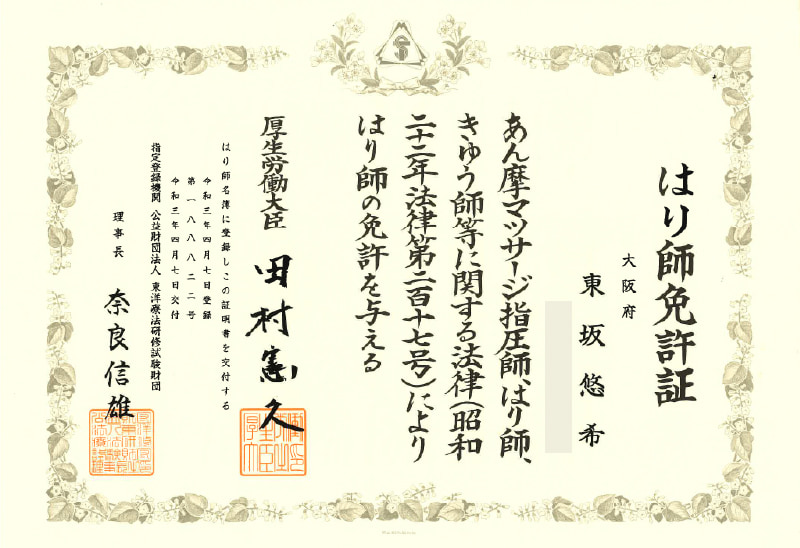 はり師免許証
大阪府
東坂悠希
あん摩マツサージ指圧師、はり師、
きゆう師等に関する法律(昭和
二十二年法律第二百十七号)により
はり師の免許を与える
厚生労働大臣 田村憲久
はり師名簿に登録しこの証明書を交付する
令和三年四月七日登録
第一八八八二二号
令和三年四月七日交付
指定登録機関 公益財団法人 東洋療法研修試験財団
理事長 奈良信雄